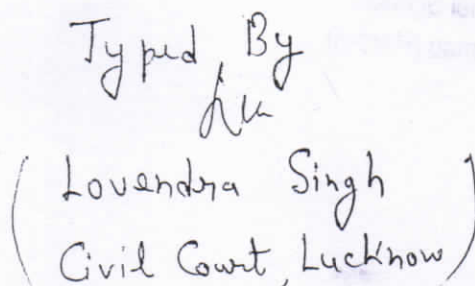 Typed By
(Lovendra Singh
Civil Court, Lucknow)